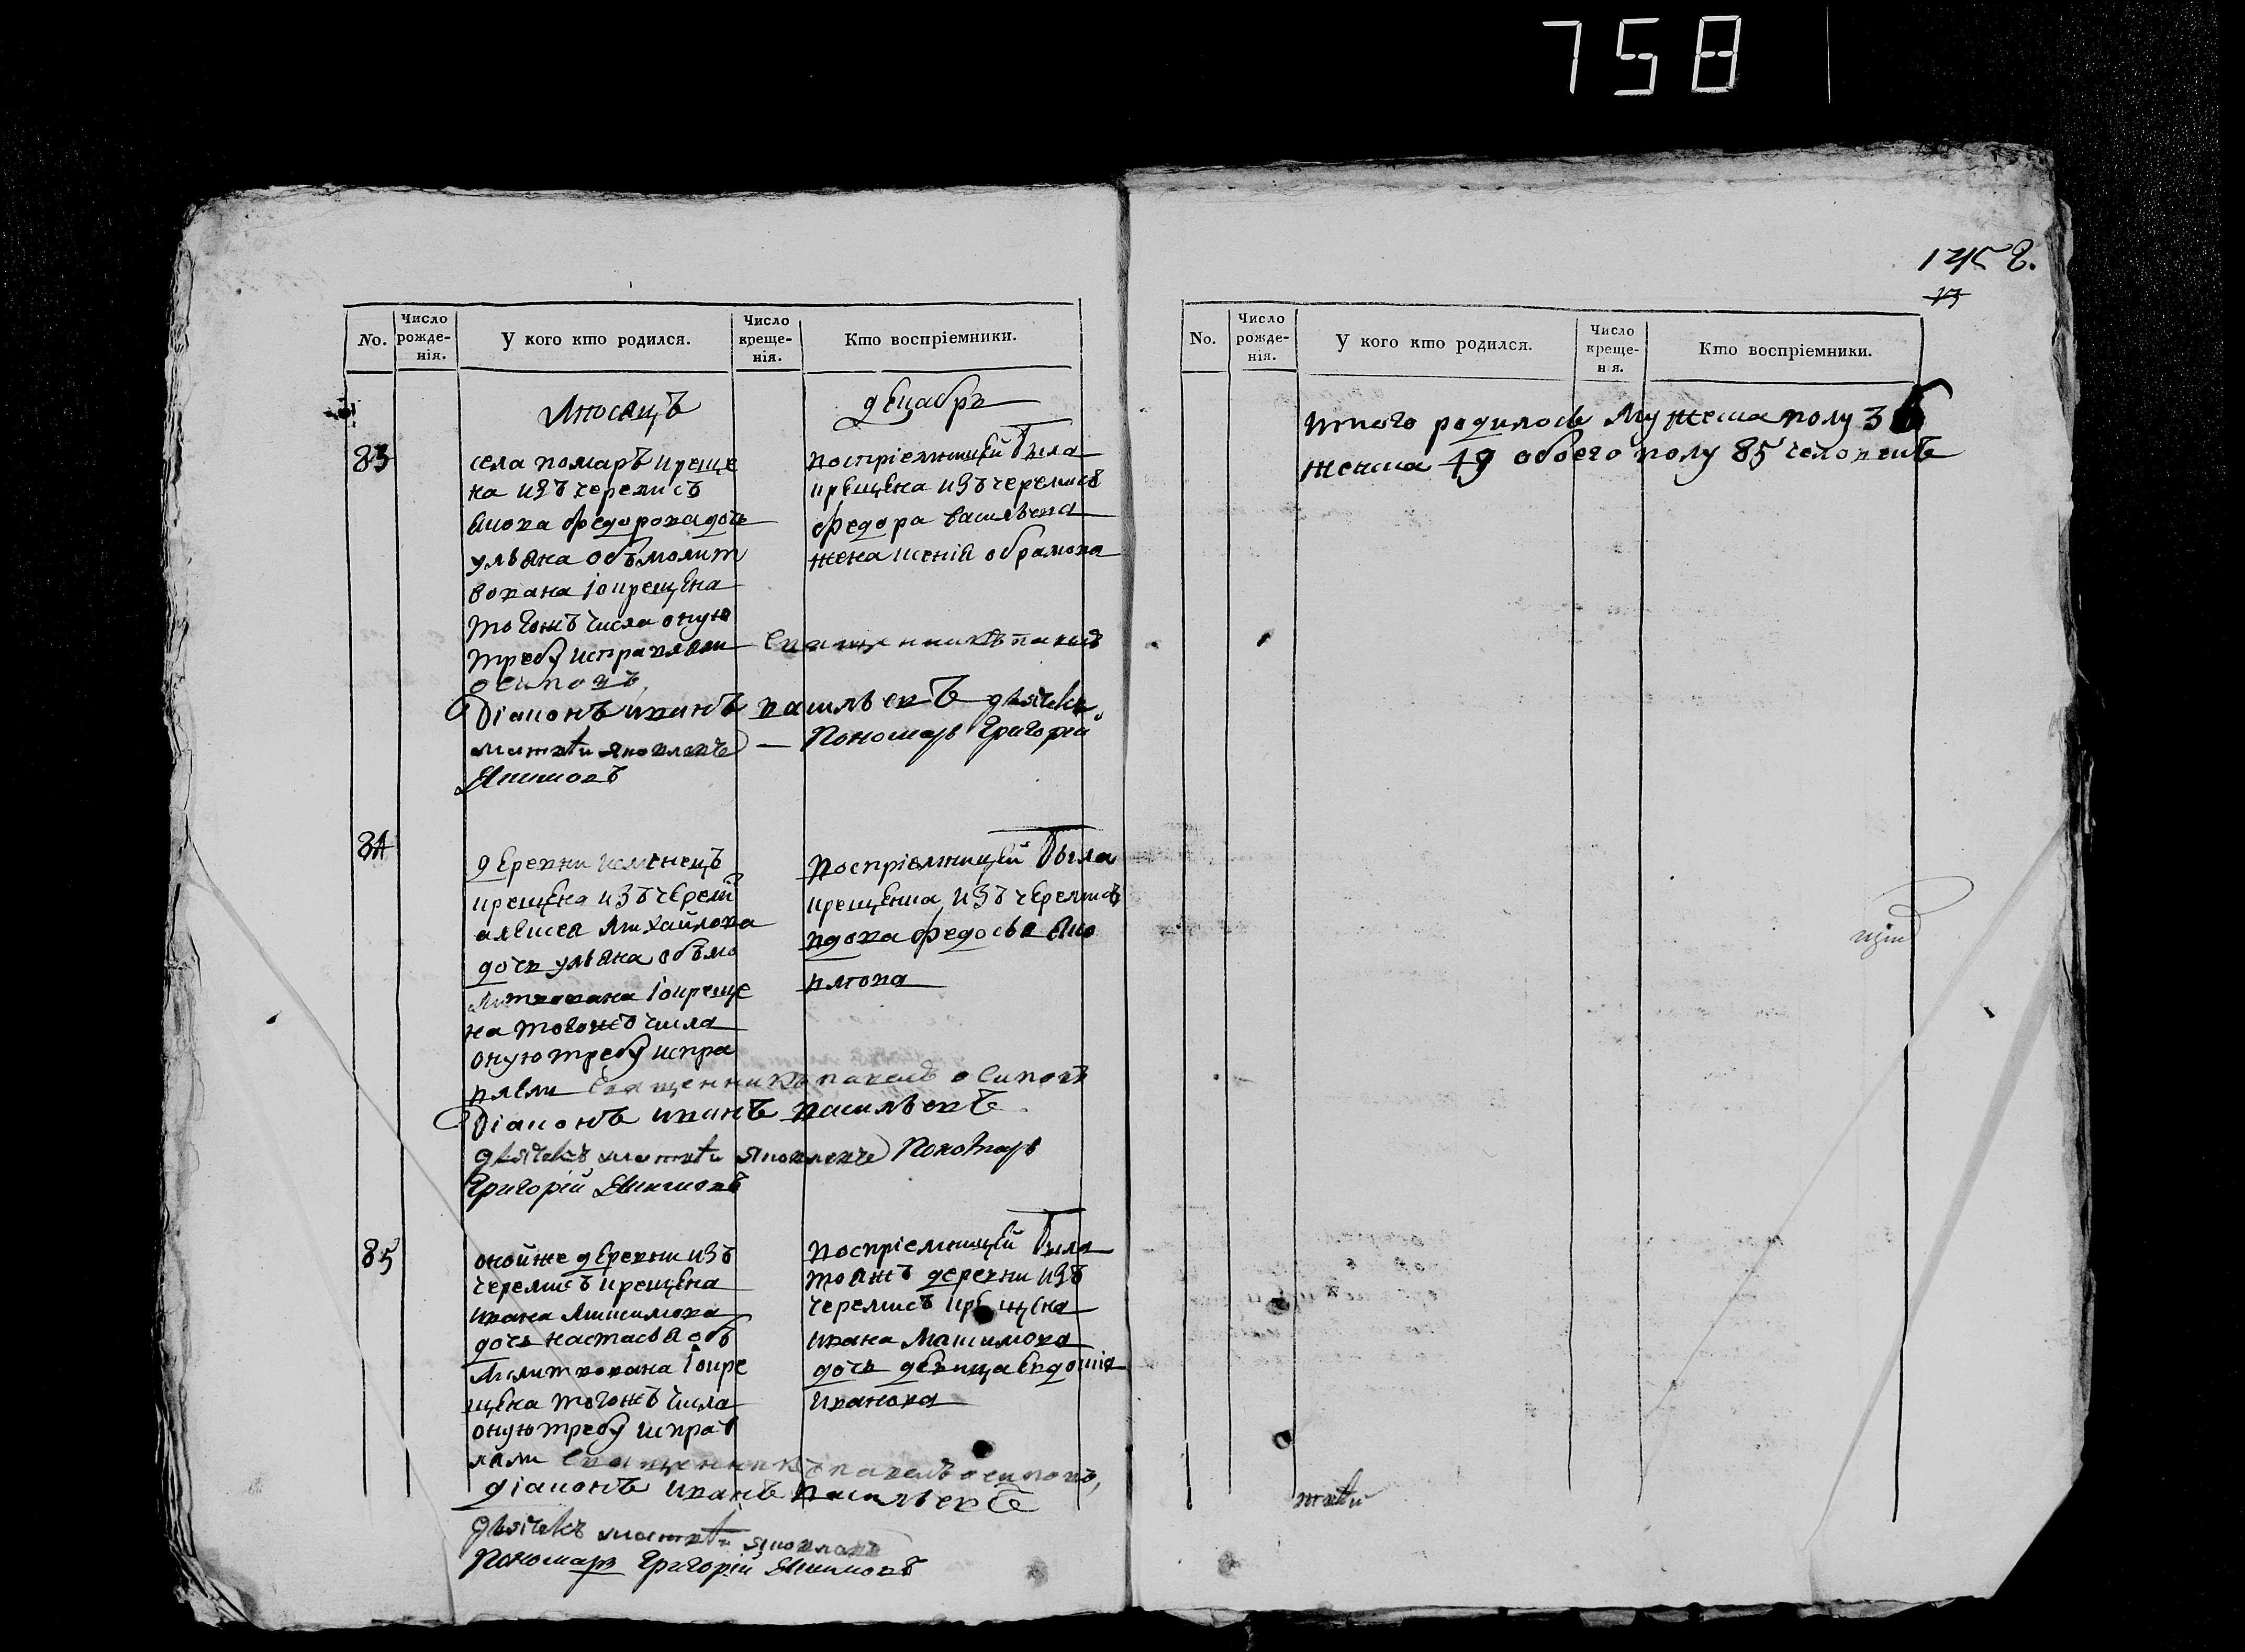 758
1245 8.
13
No.
Число рожде-нія.
У кого кто родился.
Число креще-нія.
Кто воспріемники.
Мѣсяцъ
декабрь
83
села помаръ креще
на изъ черемисъ
якова федорова дочь
ульяна объ молит
вована i окрещена
тогожъ числа оную
требу исправляли священникъ павелъ
осиповъ
Діаконъ иванъ васильевъ дьячекъ
матвѣй яковлевъ — Пономарь Григорей
Якимовъ
воспріемницей была
крещена изъ черемисъ
федора васильева
жена ксенія абрамова
84
деревни
крещена изъ черемі
алексея михайлова
дочь ульяна объмо
литвована i окреще
на тогожъ числа
оную требу испра
вляли священникъ павелъ осиповъ
Діаконъ иванъ васильевъ
дьячекъ матвѣй яковлевъ Пономарь
Григорій Якимовъ
воспріемницей была
крещеная изъ черемисъ
вдова федосья яко
влева
85
оной же деревни изъ
черемисъ крещена
ивана максимова
дочь настасья объ
молитвована i окре
щена тогожъ числа
оную требу исправ
ляли священникъ павелъ осиповъ,
діаконъ иванъ васильевъ
дьячекъ матвѣй яковлевъ
Пономарь Григорій Якимовъ
воспріемницей была
тояжъ деревни изъ
черемисъ крещена
ивана максимова
дочь девица евдокия
иванова
No.
Число рожде-нія.
У кого кто родился.
Число креще-нія.
Кто воспріемники.
итого родилось мужеска полу 36
женска 49 обоего полу 85 человекъ